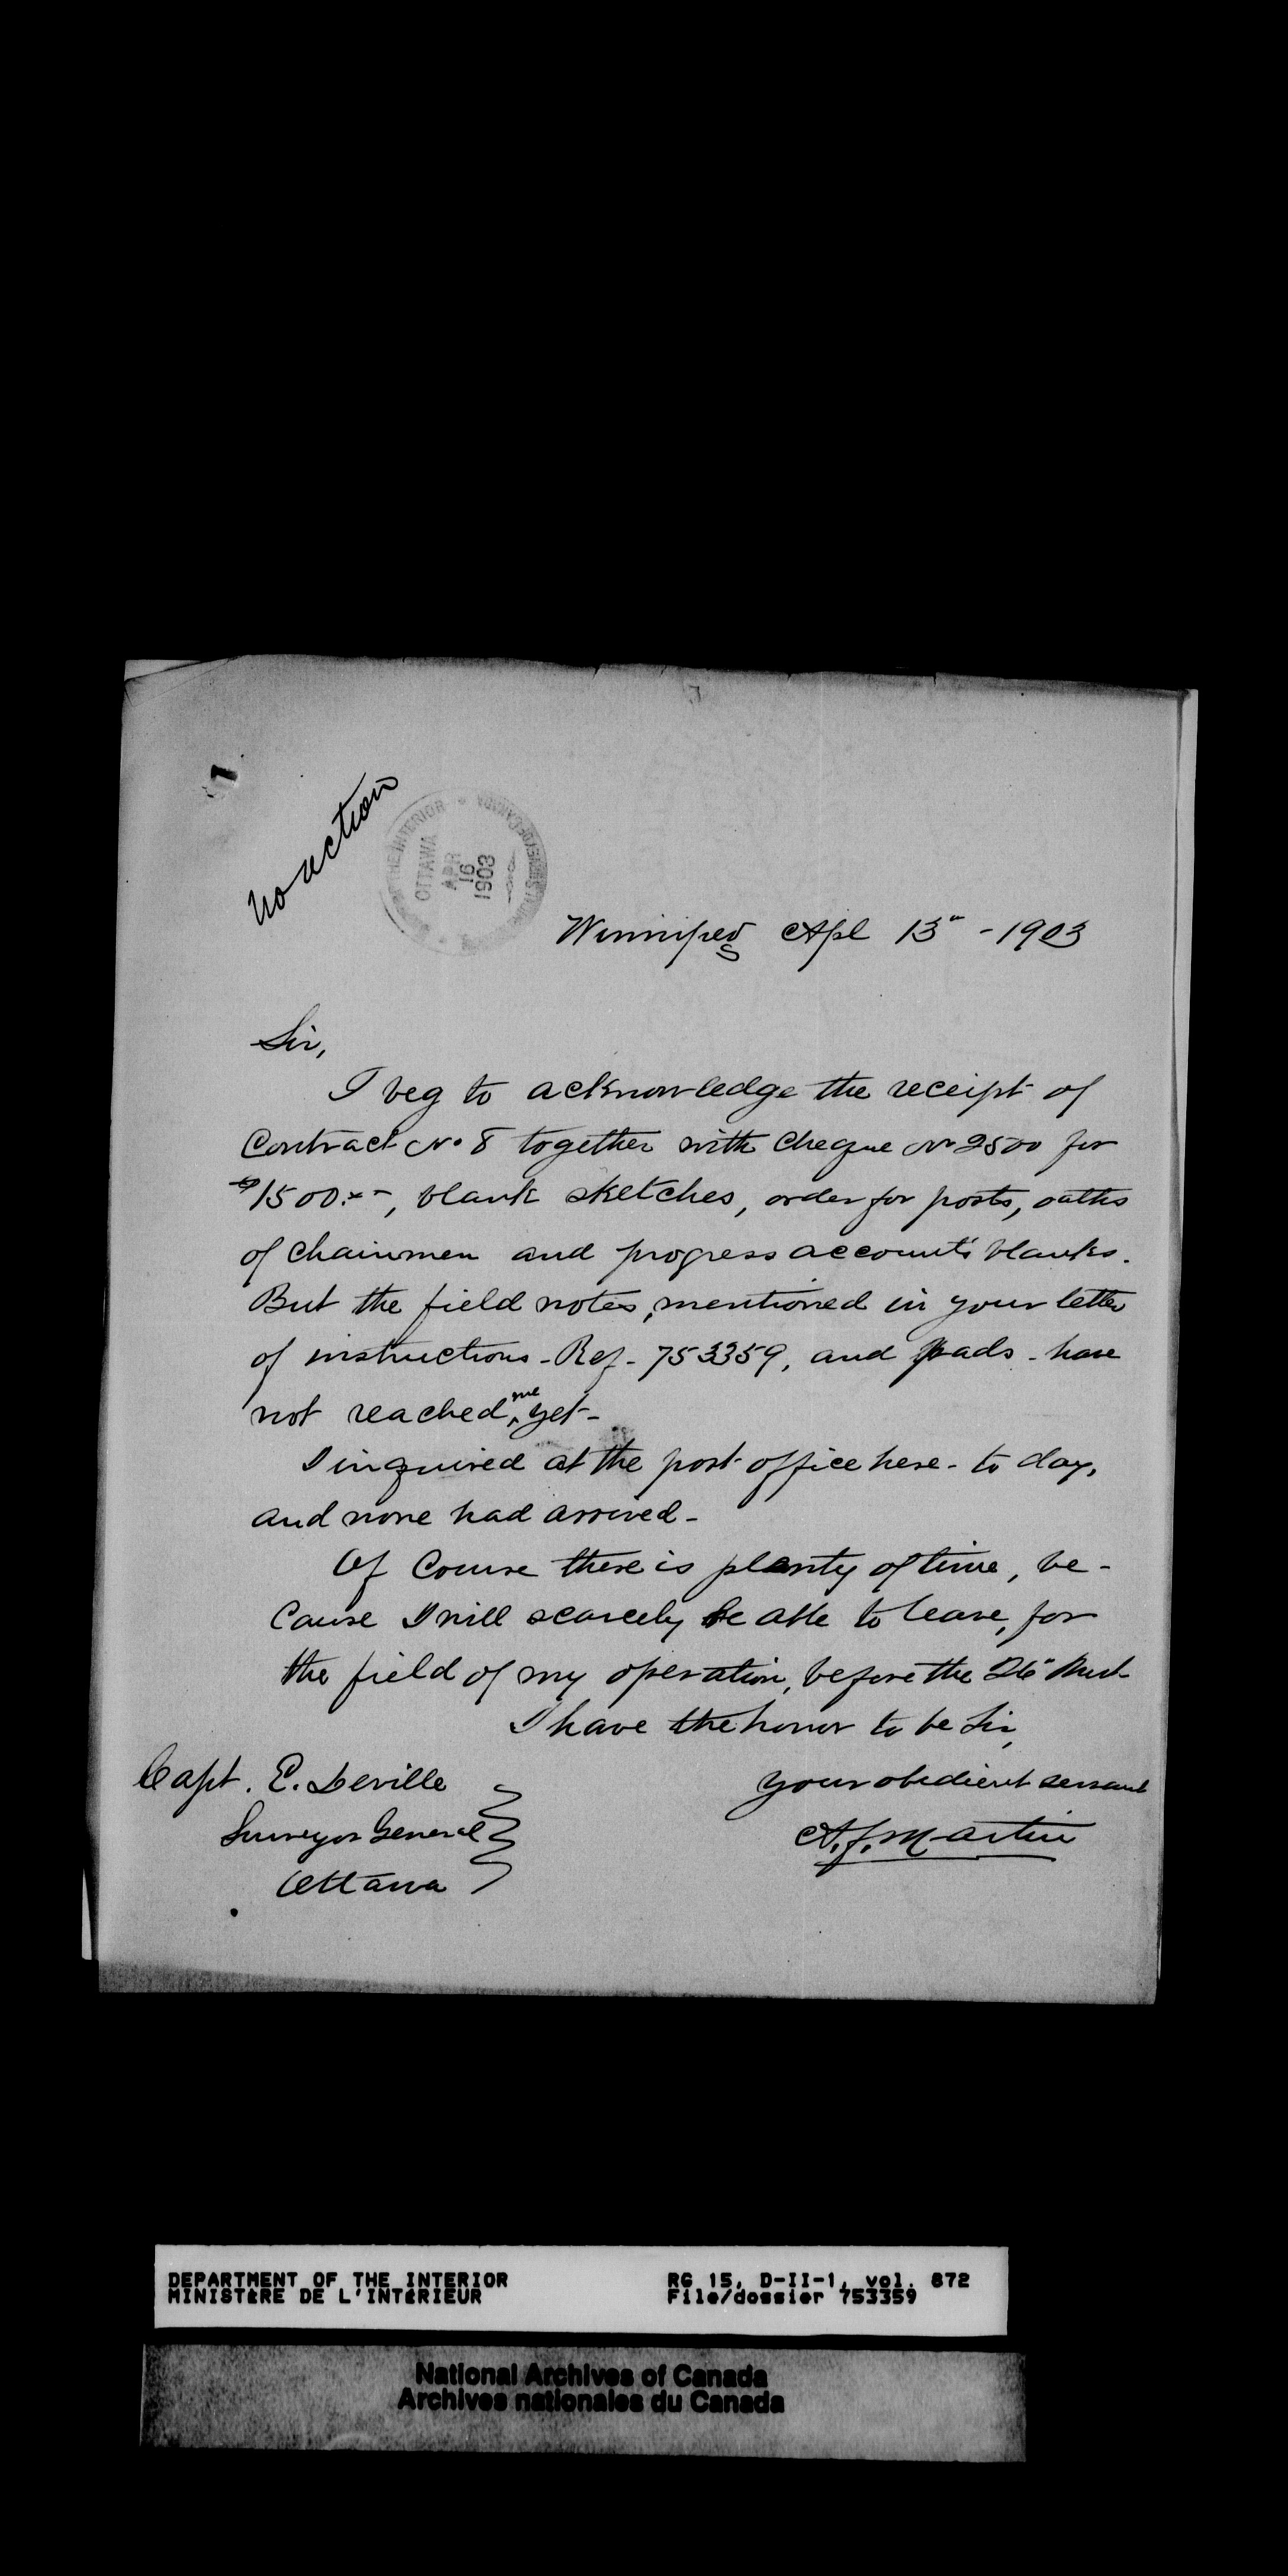 No action
THE INTERIOR
OTTAWA
APR
16
1903
Winnipeg Apl 13" - 1903
Sir,
I beg to acknowledge the receipt of
Contract No 8 together with Cheque No 2500 for
$1500.xx-, blank sketches, order for posts, oaths
of chainmen and progress account's blanks.
But the field notes, mentioned in your letter
of instructions - Ref - 753359, and pads - have
not reached, me yet -
I inquired at the post-office here - to day,
and none had arrived -
Of Course there is planty of time, be-
Cause I will scarcely be able to leave, for
the field of my operation, before the 26" Inst
I have the honor to be Sir,
Your obedient servant
A. J. Martin
Capt. E. Deville
Surveyor General
Ottawa
DEPARTMENT OF THE INTERIOR
MINISTÈRE DE L'INTÉRIEUR
RG 15, D-II-1, vol. 872
File/dossier 753359
National Archives of Canada
Archives nationales du Canada